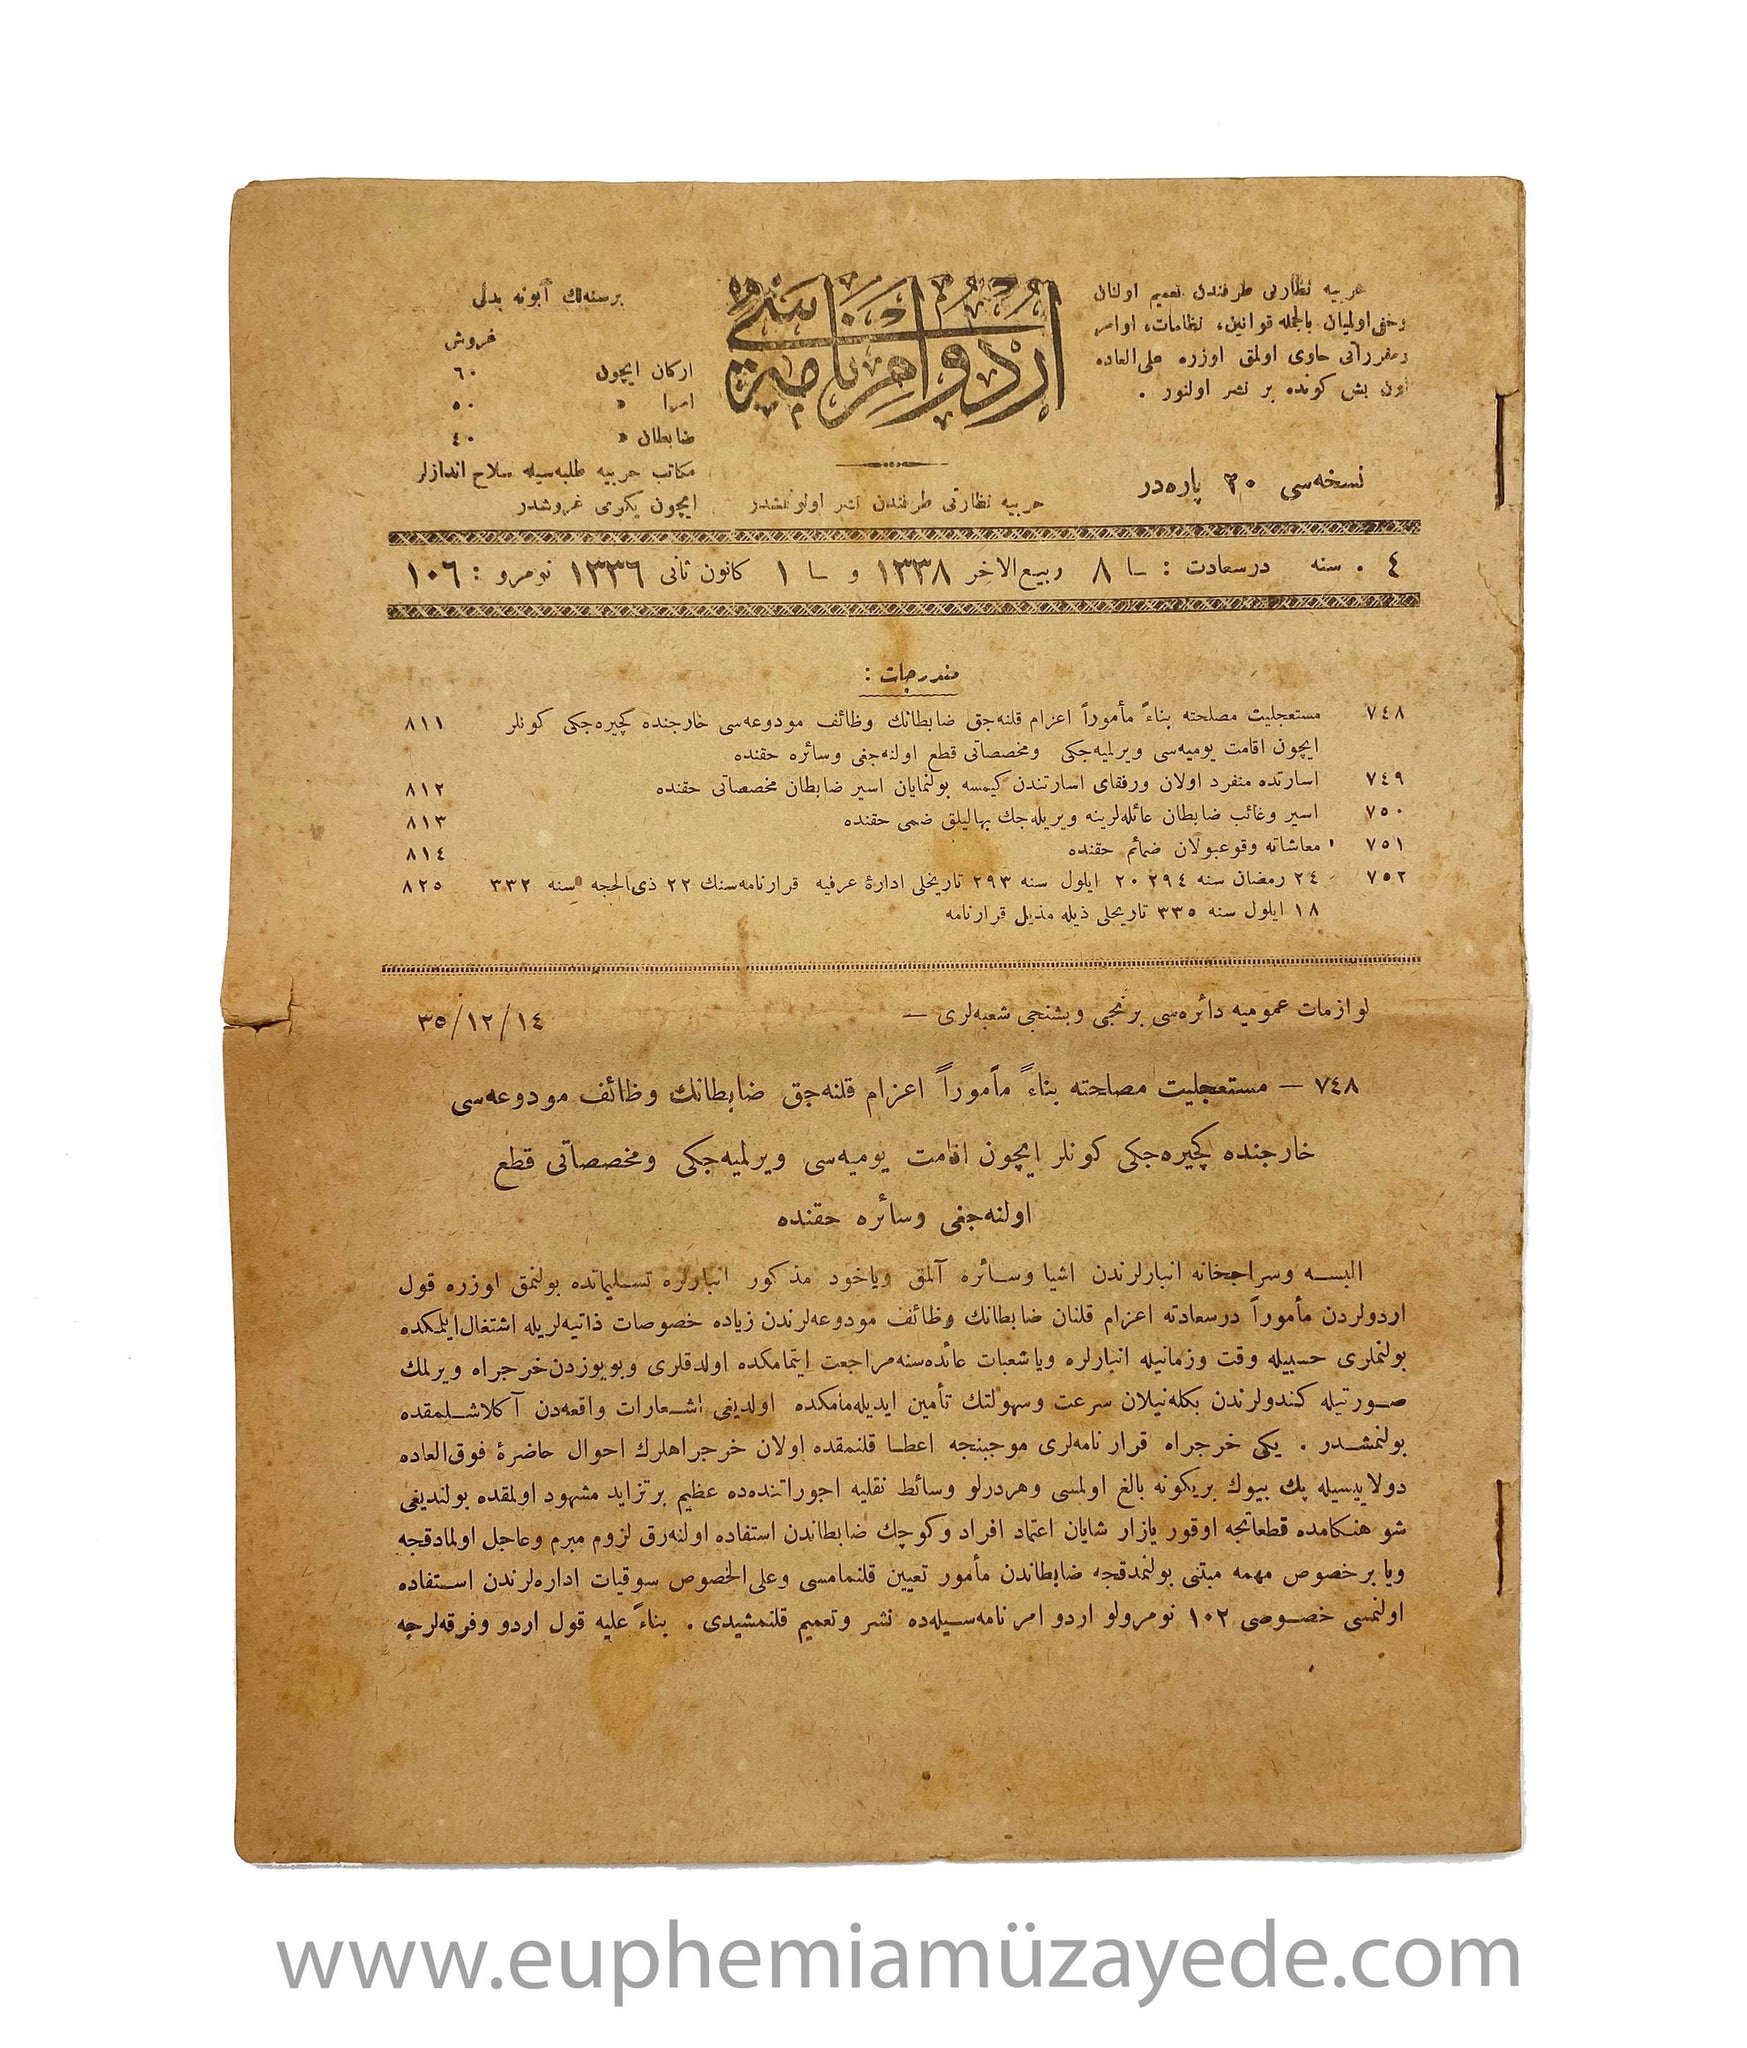 حربیه نظارتی طرفندن تعمیم اولنان
وخفی اولمیان بالجمله قوانین، نظامات، اوامر
ومقرراتی حاوی اولمق اوزره علی العاده
اون بش کونده بر نشر اولنور .
نسخه‌سی ۲۰ پاره‌در
اردو امرنامه‌سی
حربیه نظارتی طرفندن نشر اولونمشدر
برسنه‌لك آبونه بدلی
غروش
ارکان ایچون ٦٠
امرا » ٥٠
ضابطان » ٤٠
مکاتب حربیه طلبه‌سیله سلاح اندازلر
ایچون یکرمی غروشدر
٤ . سنه درسعادت : ـا ٨ ربیع‌الاخر ١٣٣٨ و ـا ١ کانون ثانی ١٣٣٦ نومرو : ١٠٦
مندرجات :
٧٤٨ مستعجلیت مصلحته بناءً مأموراً اعزام قلنه‌جق ضابطانك وظائف مودوعه‌سی خارجنده کچیره‌جکی کونلر ٨١١
ایچون اقامت یومیه‌سی ویرلمیه‌جکی ومخصصاتی قطع اولنه‌جغی وسائره حقنده
٧٤٩ اسارتده منفرد اولان ورفقای اسارتندن کیمسه بولنمایان اسیر ضابطان مخصصاتی حقنده ٨١٢
٧٥٠ اسیر وغائب ضابطان عائله‌لرینه ویریله‌جك بهالیلق ضمی حقنده ٨١٣
٧٥١ معاشاته وقوعبولان ضمائم حقنده ٨١٤
٧٥٢ ٢٤ رمضان سنه ٢٩٤ ٢٠ ایلول سنه ٢٩٣ تاریخلی ادارهٔ عرفیه قرارنامه‌سنك ٢٢ ذی‌الحجه سنه ٣٣٢ ٨٢٥
١٨ ایلول سنه ٣٣٥ تاریخلی ذیله مذیل قرارنامه
لوازمات عمومیه دائره‌سی برنجی وبشنجی شعبه‌لری — ٣٥/١٢/١٤
٧٤٨ — مستعجلیت مصلحته بناءً مأموراً اعزام قلنه‌جق ضابطانك وظائف مودوعه‌سی
خارجنده کچیره‌جکی کونلر ایچون اقامت یومیه‌سی ویرلمیه‌جکی ومخصصاتی قطع
اولنه‌جغی وسائره حقنده
البسه وسراجخانه انبارلرندن اشیا وسائره آلمق ویاخود مذکور انبارلره تسلیماتده بولنمق اوزره قول
اردولردن مأموراً درسعادته اعزام قلنان ضابطانك وظائف مودوعه‌لرندن زیاده خصوصات ذاتیه‌لریله اشتغال ایلمکده
بولنملری حسبیله وقت وزمانیله انبارلره ویا شعبات عائده‌سنه مراجعت ایتمامکده اولدقلری وبویوزدن خرجراه ویرلمك
صورتیله کندولرندن بکله‌نیلان سرعت وسهولتك تأمین ایدیله‌مامکده اولدیغی اشعارات واقعه‌دن آکلاشلمقده
بولنمشدر . یکی خرجراه قرارنامه‌لری موجبنجه اعطا قلنمقده اولان خرجراهلرك احوال حاضرهٔ فوق‌العاده
دولاییسیله پك بیوك بریکونه بالغ اولمسی وهردرلو وسائط نقلیه اجوراتنده‌ده عظیم برتزاید مشهود اولمقده بولندیغی
شو هنکامده قطعاتجه اوقور یازار شایان اعتماد افراد وکوچك ضابطاندن استفاده اولنه‌رق لزوم مبرم وعاجل اولمادقجه
ویا برخصوص مهمه مبتنی بولنمدقجه ضابطاندن مأمور تعیین قلنمامسی وعلی‌الخصوص سوقیات اداره‌لرندن استفاده
اولنمسی خصوصی ١٠٢ نومرولو اردو امرنامه‌سیله‌ده نشر وتعمیم قلنمشیدی . بناءً علیه قول اردو وفرقه‌لرجه
www.euphemiamüzayede.com